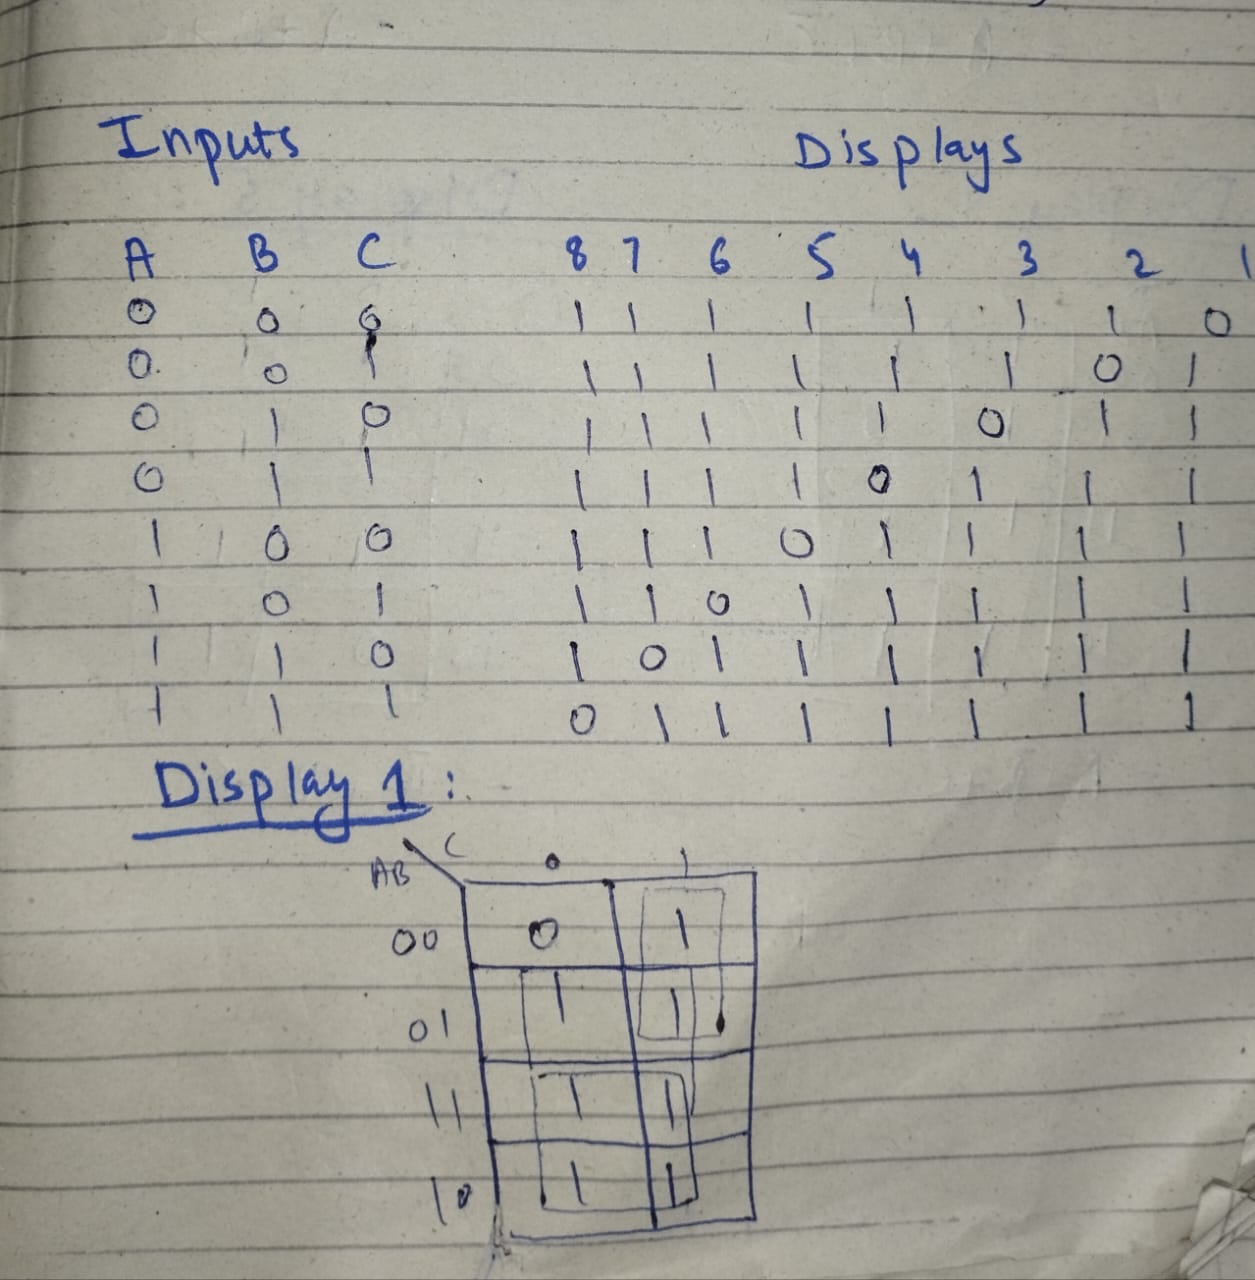 Inputs Displays
A B C 8 7 6 5 4 3 2 1
0 0 0 1 1 1 1 1 1 1 0
0 0 1 1 1 1 1 1 1 0 1
0 1 0 1 1 1 1 1 0 1 1
0 1 1 1 1 1 1 0 1 1 1
1 0 0 1 1 1 0 1 1 1 1
1 0 1 1 1 0 1 1 1 1 1
1 1 0 1 0 1 1 1 1 1 1
1 1 1 0 1 1 1 1 1 1 1
Display 1:
C 0 1
AB
00 0 1
01 1 1
11 1 1
10 1 1